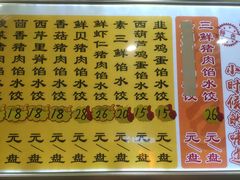 小时候的味道
三鲜猪肉馅水饺 26 元/盘
饺 元/盘
韭菜鸡蛋馅水饺 15 元/盘
西葫芦鸡蛋馅水饺 15 元/盘
素三鲜馅水饺 20 元/盘
鲜虾仁猪肉馅水饺 26 元/盘
鲜贝猪肉馅水饺 28 元/盘
香菇猪肉馅水饺 18 元/盘
西芹里脊馅水饺 18 元/盘
肉馅水饺 18 元/盘